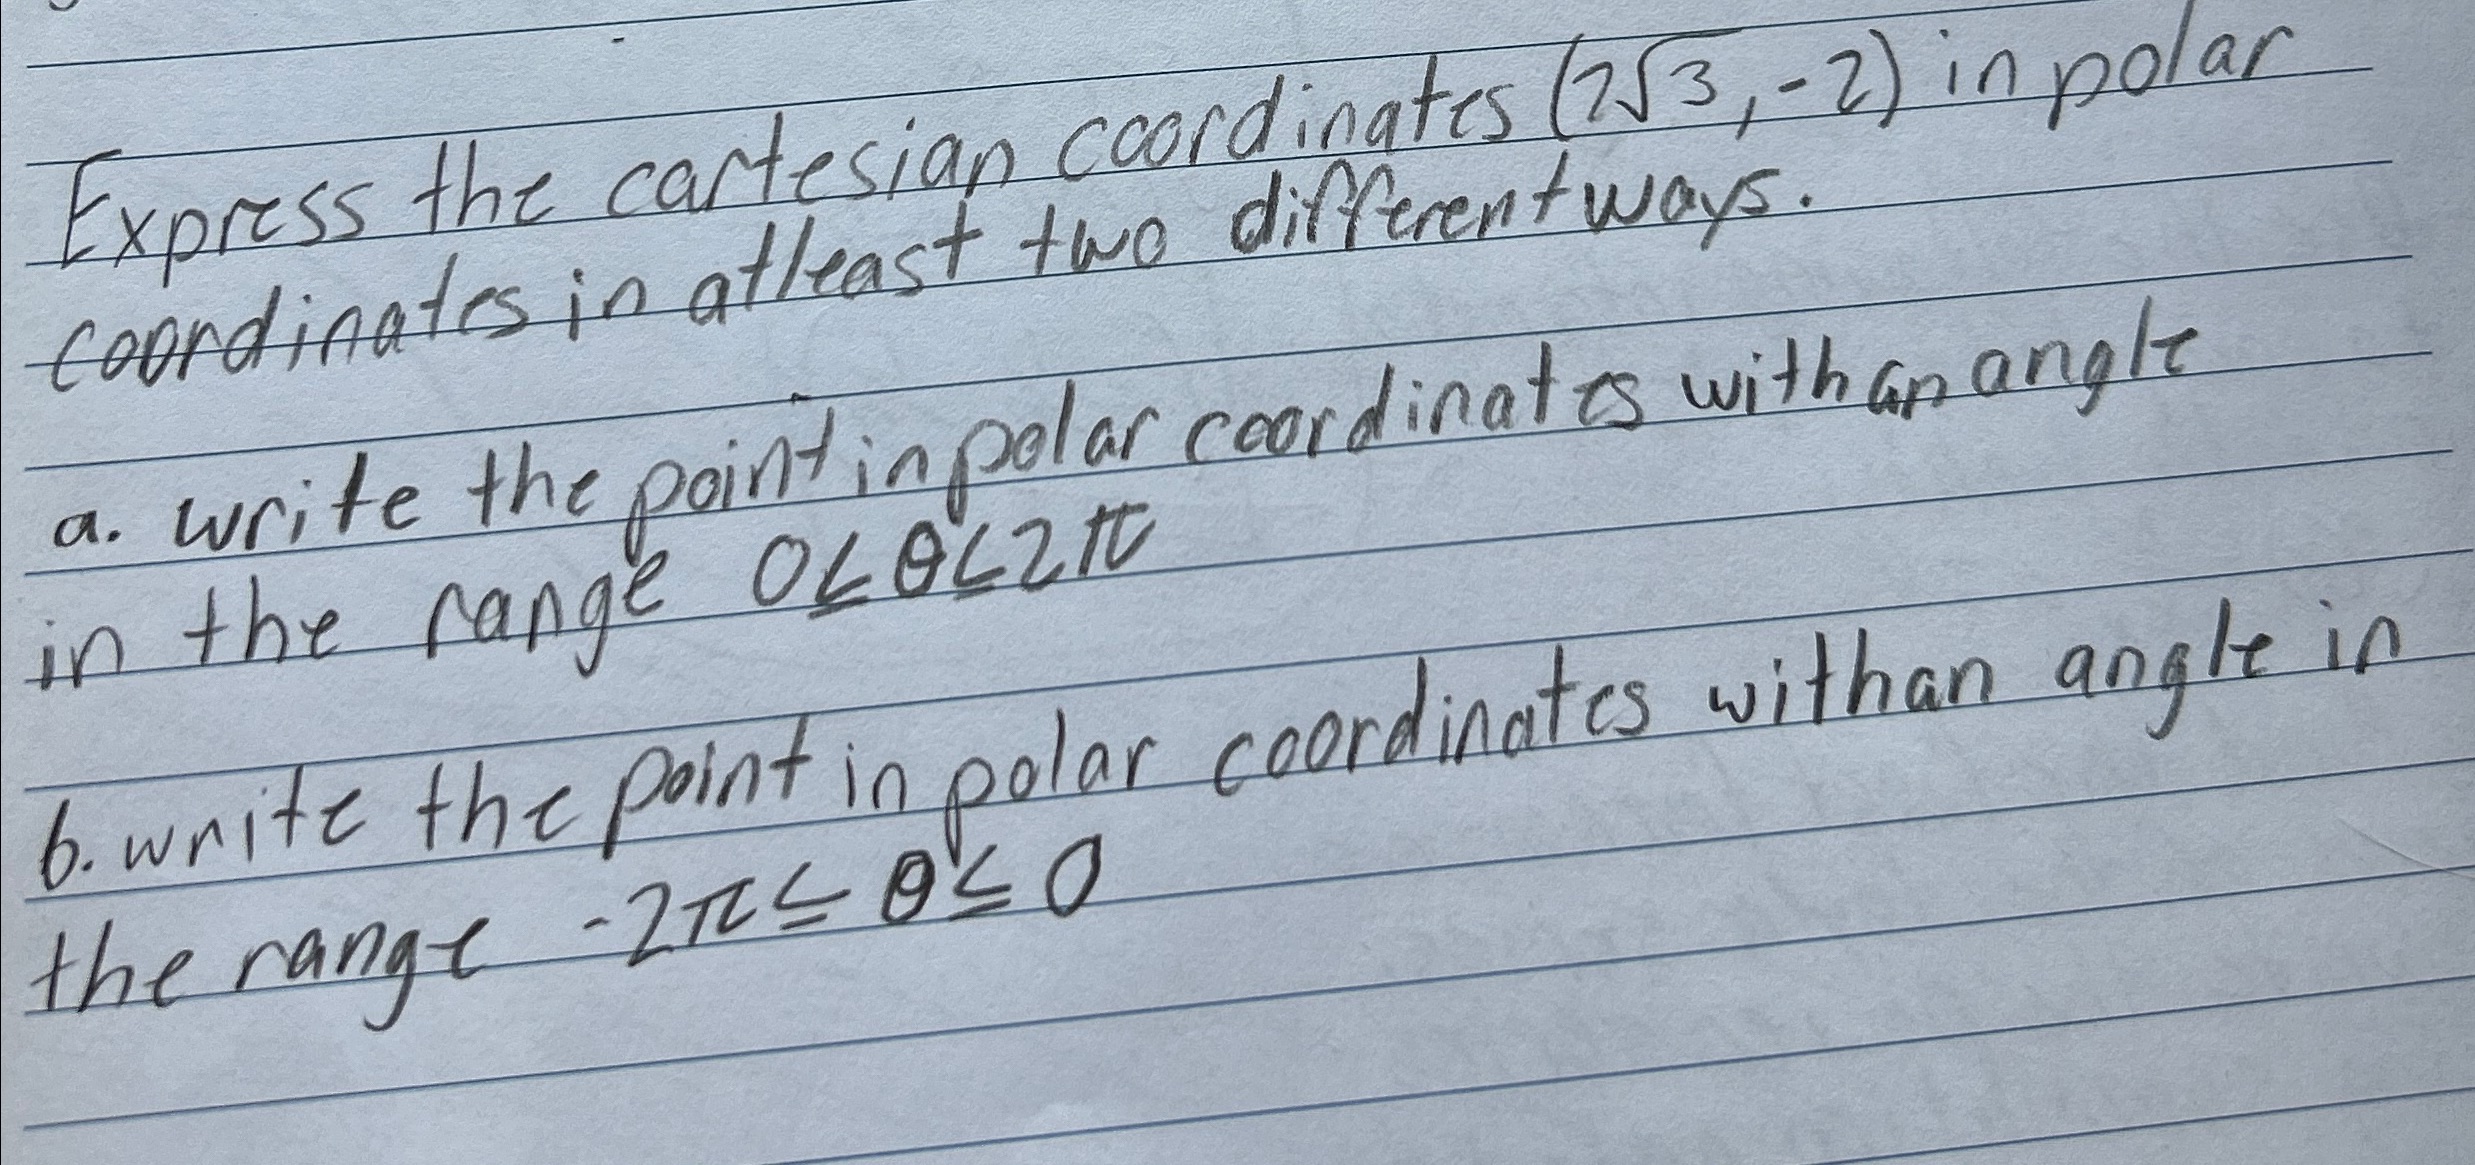 Express the cartesian coordinates (2√3, -2) in polar
coordinates in atleast two different ways.
a. write the point in polar coordinates with an angle
in the range 0 ≤ θ ≤ 2π
b. write the point in polar coordinates with an angle in
the range -2π ≤ θ ≤ 0